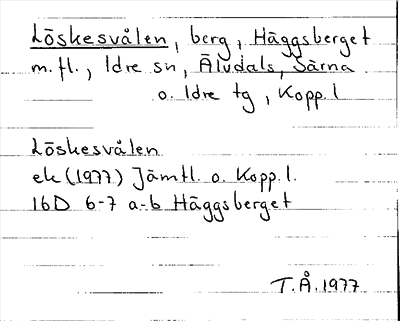 Löskesvålen, berg, Häggsberget
m.fl., Idre sn, Älvdals, Särna
o. Idre tg, Kopp.l
Löskesvålen
ek (1977) Jämtl. o. Kopp.l.
16D 6-7 a-b Häggsberget
T.Å.1977